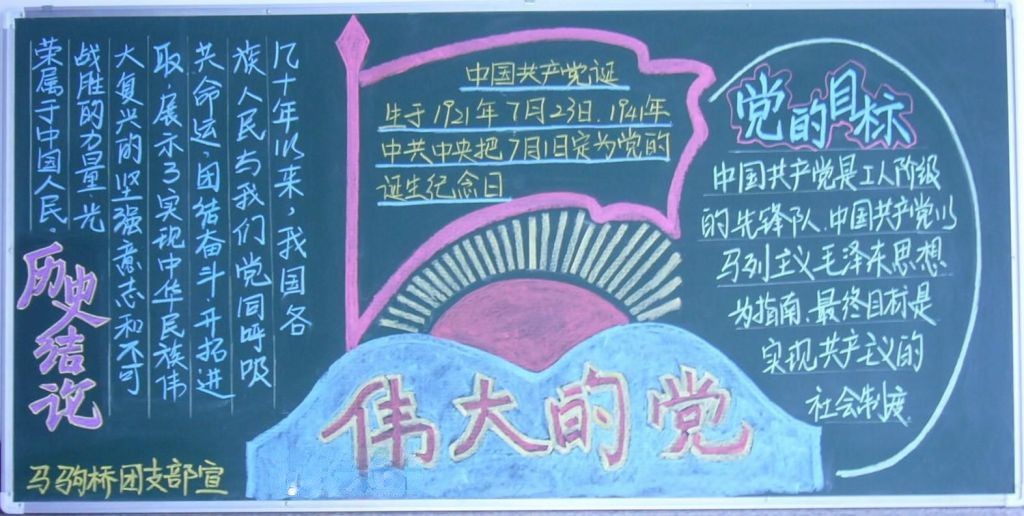 几十年以来，我国各
族人民与我们党同呼吸
共命运，团结奋斗，开拓进
取，展示了实现中华民族伟
大复兴的坚强意志和不可
战胜的力量，光
荣属于中国人民，
历史结论
马驹桥团支部宣
中国共产党诞
生于1921年7月23日.1941年
中共中央把7月1日定为党的
诞生纪念日
伟大的党
党的目标
中国共产党是工人阶级
的先锋队.中国共产党以
马列主义毛泽东思想
为指南.最终目标是
实现共产主义的
社会制度